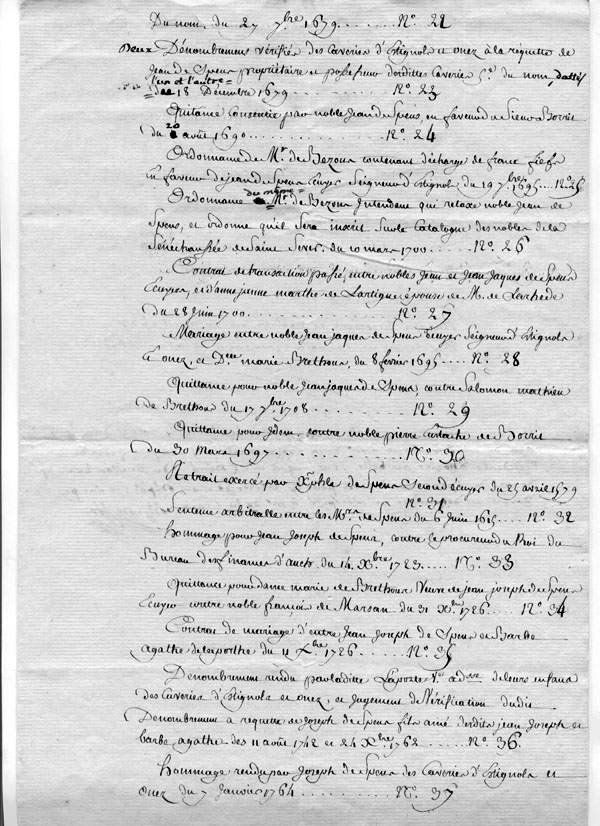 Du nom. du 27 7bre 1679 ........ No. 22
Deux Dénombremens vérifiés des Caveries d'Estignols et onez à la requette de
Jean de Spens propriétaire et possesseur desdittes Caveries du nom, dattés
l'un et l'autre
du 18 Décembre 1679 ........ No. 23
Quitance Consentie par noble Jean de Spens, en faveur du Sieur Borrit
du 20 août 1690 ........ No. 24
Ordonnance de Mr. de Bezons contenant décharge de franc fiefs
en faveur de jean de Spens Ecuyer Seigneur d'Estignols du 19 7bre 1695 ... No. 25
Ordonnance du même Mr. de Bezons Intendant qui relaxe noble Jean de
Spens, et ordonne qu'il sera inscrit sur le Catalogue des nobles de la
Sénéchaussée de Saint Sever. du 10 mars 1700 ..... No. 26
Contrat de transaction passé, entre nobles Jean et Jean Jaques de Spens
Ecuyers, et dame jeanne marthe de Lartigue épouse de M. de
du 28 Juin 1700 ........ No. 27
Mariage entre noble Jean jaques de Spens Ecuyer Seigneur d'Estignols
et onez, et Dlle marie Brethous, du 8 fevrier 1695 .... No. 28
Quittance pour noble Jean jaques de Spens, contre Salomon mathieu
de Brethous du 17 7bre 1708 ........ No. 29
Quittance pour Idem contre noble pierre Eustache de Borrit
du 30 Mars 1697 ........ No. 30
Retrait exercé par de Spens Second écuyer du 25 avril 1579
No. 31
Sentence arbitralle entre les Mrs. de Spens du 6 Juin 1615 .... No. 32
Hommage pour Jean Joseph de Spens, contre le procureur du Roi du
Bureau des finances d'auch du 14. Xbre 1723 ........ No. 33
Quittance pour dame marie de Brethous Veuve de jean joseph de Spens
Ecuyer contre noble françois de Marsan du 31 Xbre 1726 .... No. 34
Contrat de mariage d'entre Jean Joseph de Spens et Barbe
agathe de laporthe du 11 Xbre 1726 ........ No. 35
Dénombrement rendu par laditte Laporte de leurs enfans
des Caveries d'Estignols et onez, et jugement de Vérification dudit
Denombrement a requette de Joseph de Spens fils ainé desdits jean Joseph et
barbe agathe des 11 août 1742 et 24 Xbre 1762 ...... No. 36.
Hommage rendu par Joseph de Spens des Caveries d'Estignols et
onez du 7 Janvier 1764 ........ No. 37